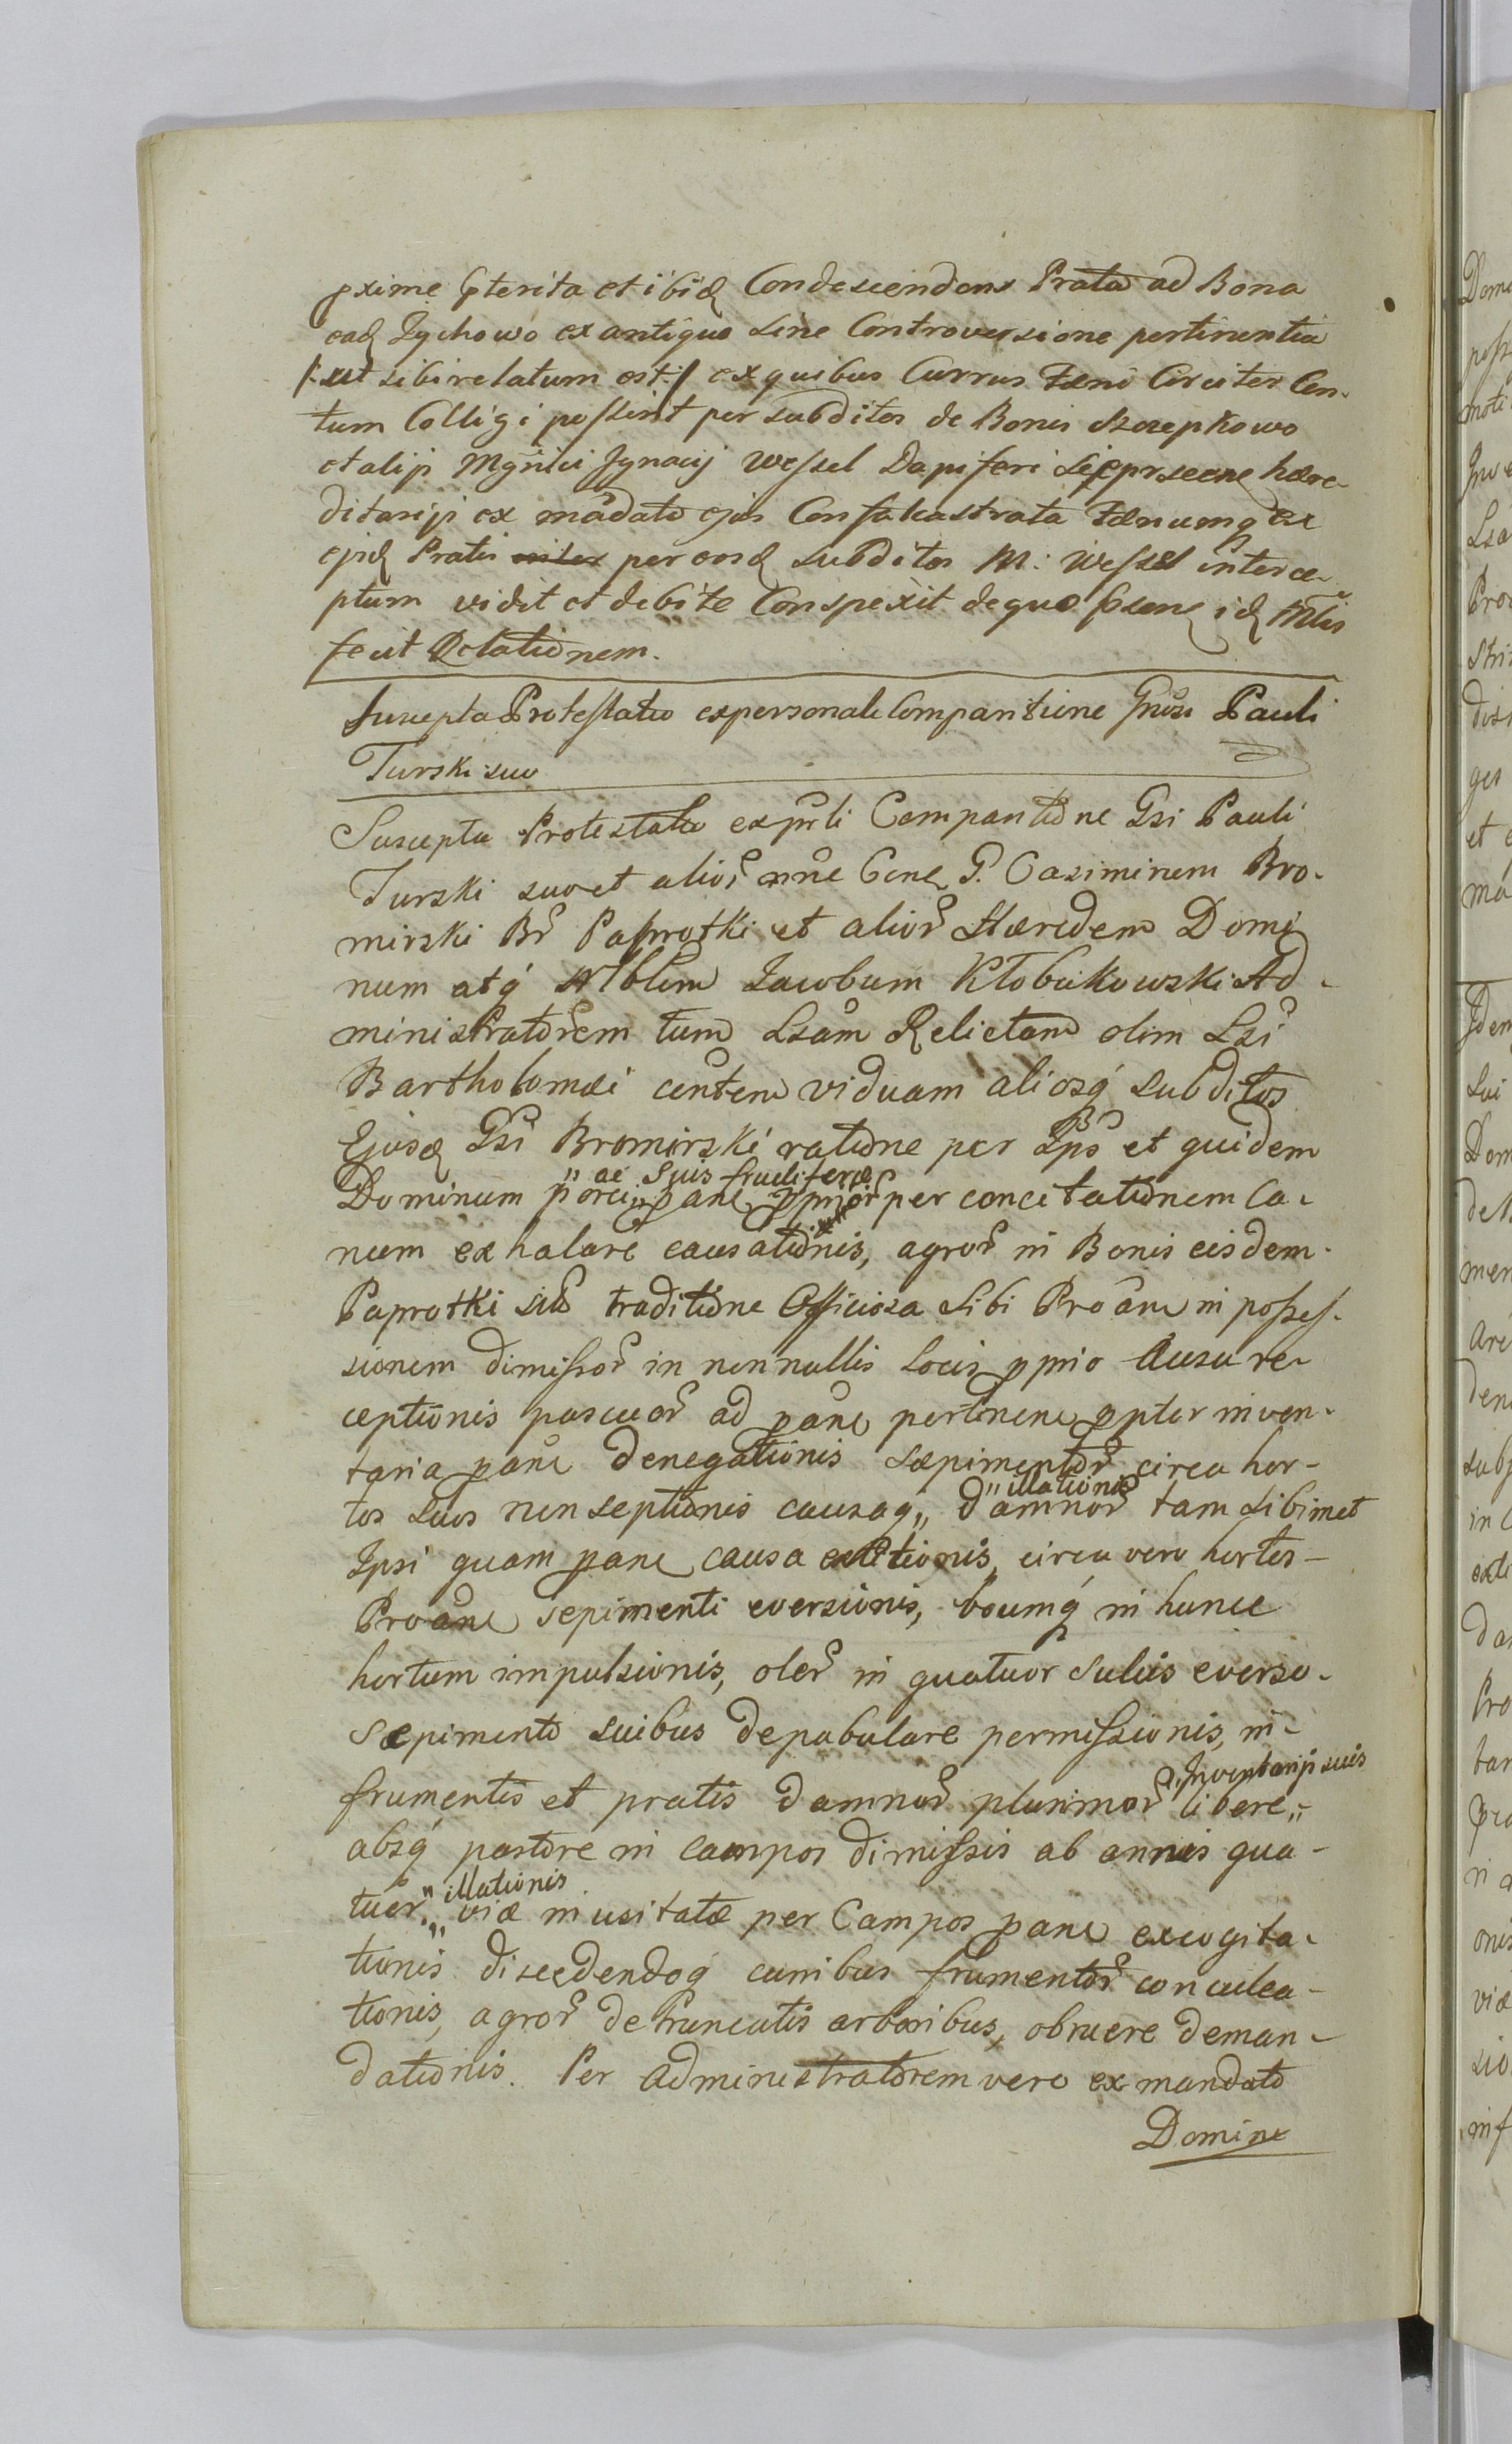 pxime pterita et ibid Condescendens Prata ad Bona
ead Zychowo ex antiquo sine Controversione pertinentia
/:ut sibi relatum est:/ ex quibus Currus Fæni Circiter Cen-
tum Colligi possint per subditos de Bonis Szczepkowo
et alijs Mgnici Ignacij Wessel Dapiferi hære-
ditarijs ex madato ejus Confalcastrata Fænumq ex
ejsd Pratis per eosd subditos M: Wessel interce-
ptum vidit et debite Conspexit de quo id Mlis
fecit Relationem.
Suscepta Protestatio ex personali Comparitione Gnosi Pauli
Turski suo
Suscepta Protestatio ex prli Comparitione Gsi Pauli
Turski suo et alior nne Cone G. Casimirum Bro-
mirski Br Paprotki et alior Hæredem Domi
num atq Nblem Jacobum Kłobukowski Ad-
ministratorem tum Lsam Relictam olim Lsi
Bartholomæi centem viduam aliosq subditos
Ejusd Gsi Bromirski ratione per Ips et quidem
" ac Suis fructiferæ
Dominum porci,, pane pprior per concitationem Ca-
num exhalare causationis, agror in Bonis eisdem
Paprotki sub traditione Officiosa Sibi Proane in posses-
sionem dimissor in nonnullis Locis pprio Ausu re-
ceptionis pascuor ad pane pertinene ppter inven-
taria pane denegationis sæpimentor circa hor-
" illationis
tos suos non septionis causaq,, damnor tam sibimet
Ipsi quam pane causa extitionis, circa vero hortos
Proane sepimenti eversionis, boumq in hunce
hortum impulsionis, oler in quatuor sulcis everso
sæpimento suibus depabulare permissionis, in
" Inventarijs suis
frumentis et pratis damnor plurimor libere,,
absq pastore in campos dimissis ab annis qua-
" illationis
tuor,, viæ inusitatæ per Campos pane excogita-
tionis discedendoq curribus frumentor conculca-
tionis, agror detruncatis arboribus, obruere deman-
dationis. Per Administratorem vero ex mandato
Domini